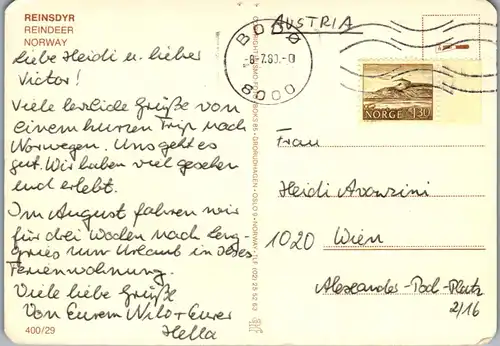 REINSDYR
REINDEER
NORWAY
Liebe Heidi u. lieber
Victor!
Viele herzliche Grüße von
einem kurzen Trip nach
Norwegen. Uns geht es
gut. Wir haben viel gesehen
und erlebt.
Im August fahren wir
für drei Wochen nach Leng-
gries zum Urlaub in
Ferienwohnung.
Viele liebe Grüße
Von Eurem Wilo + Eurer
Hella
400/29
AUSTRIA
BODØ
-8-7.80.-0
8000
NORGE 130
Frau
Heidi Avanzini
1020 Wien
Alexander-Poch-Platz
2/16